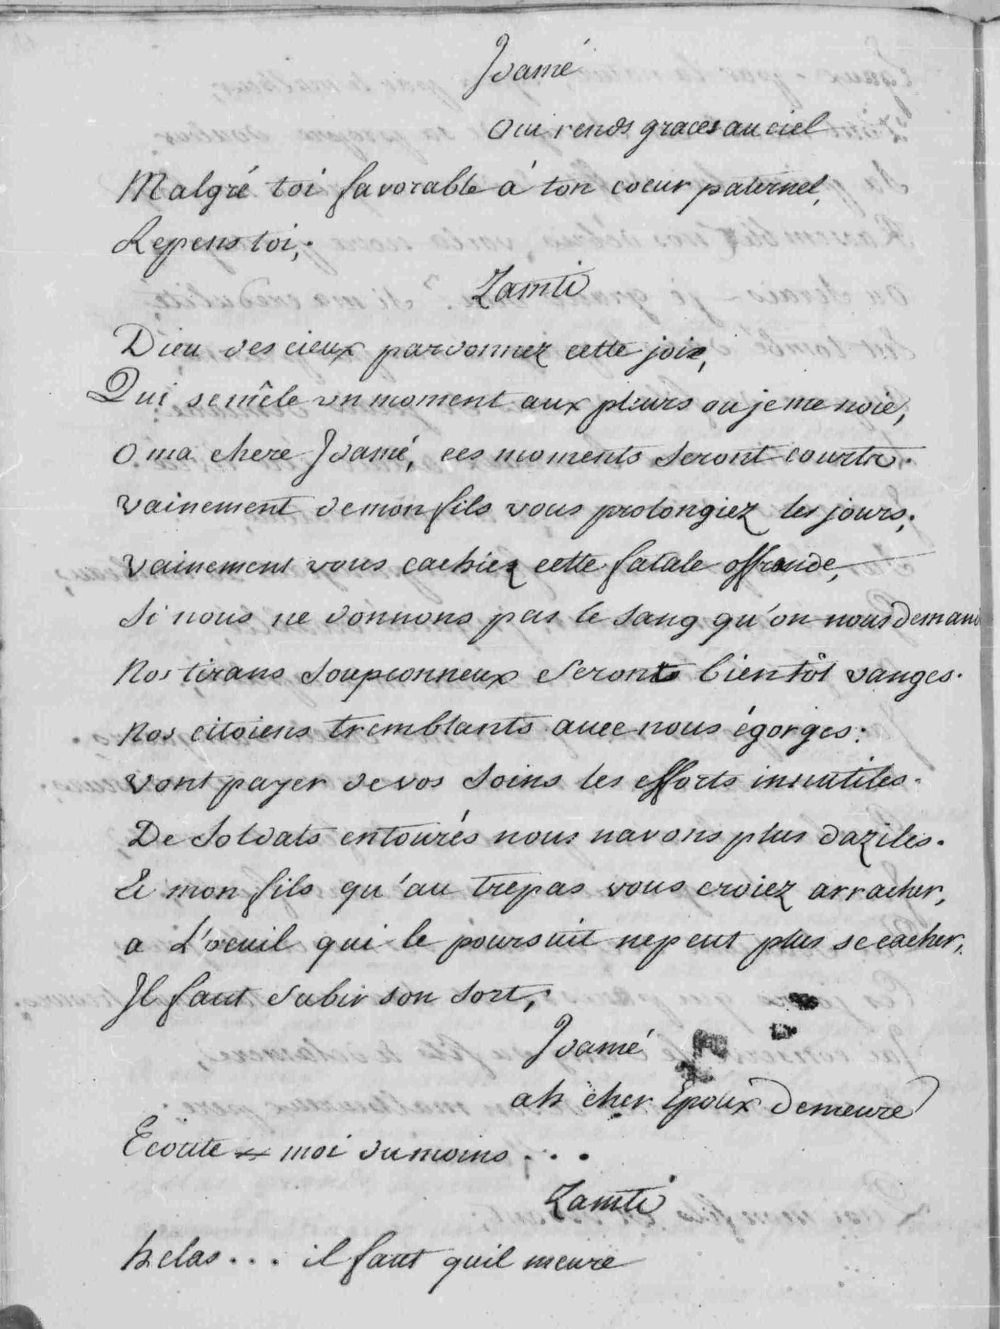 Idamé
Oui rends graces au ciel
Malgré toi favorable à ton coeur paternel,
Repens toi,
Zamti
Dieu des cieux pardonnez cette joie,
Qui se mêle un moment aux pleurs ou je me noie,
O ma chere Idamé, ces moments seront courts.
vainement de mon fils vous prolongiez les jours,
vainement vous cachiez cette fatale offrande,
Si nous ne donnons pas le sang qu'on nous demand
Nos tirans soupçonneux seront bientôt vangés.
Nos citoiens tremblants avec nous égorgés.
vont payer de vos soins les efforts innutiles.
De soldats entourés nous navons plus daziles.
Et mon fils qu'au trepas vous croiez arracher,
a L'oeuil qui le poursuit ne peut plus se cacher,
Il faut subir son sort,
Idamé
ah cher Epoux demeure
Ecoute-moi du moins...
Zamti
helas... il faut quil meure